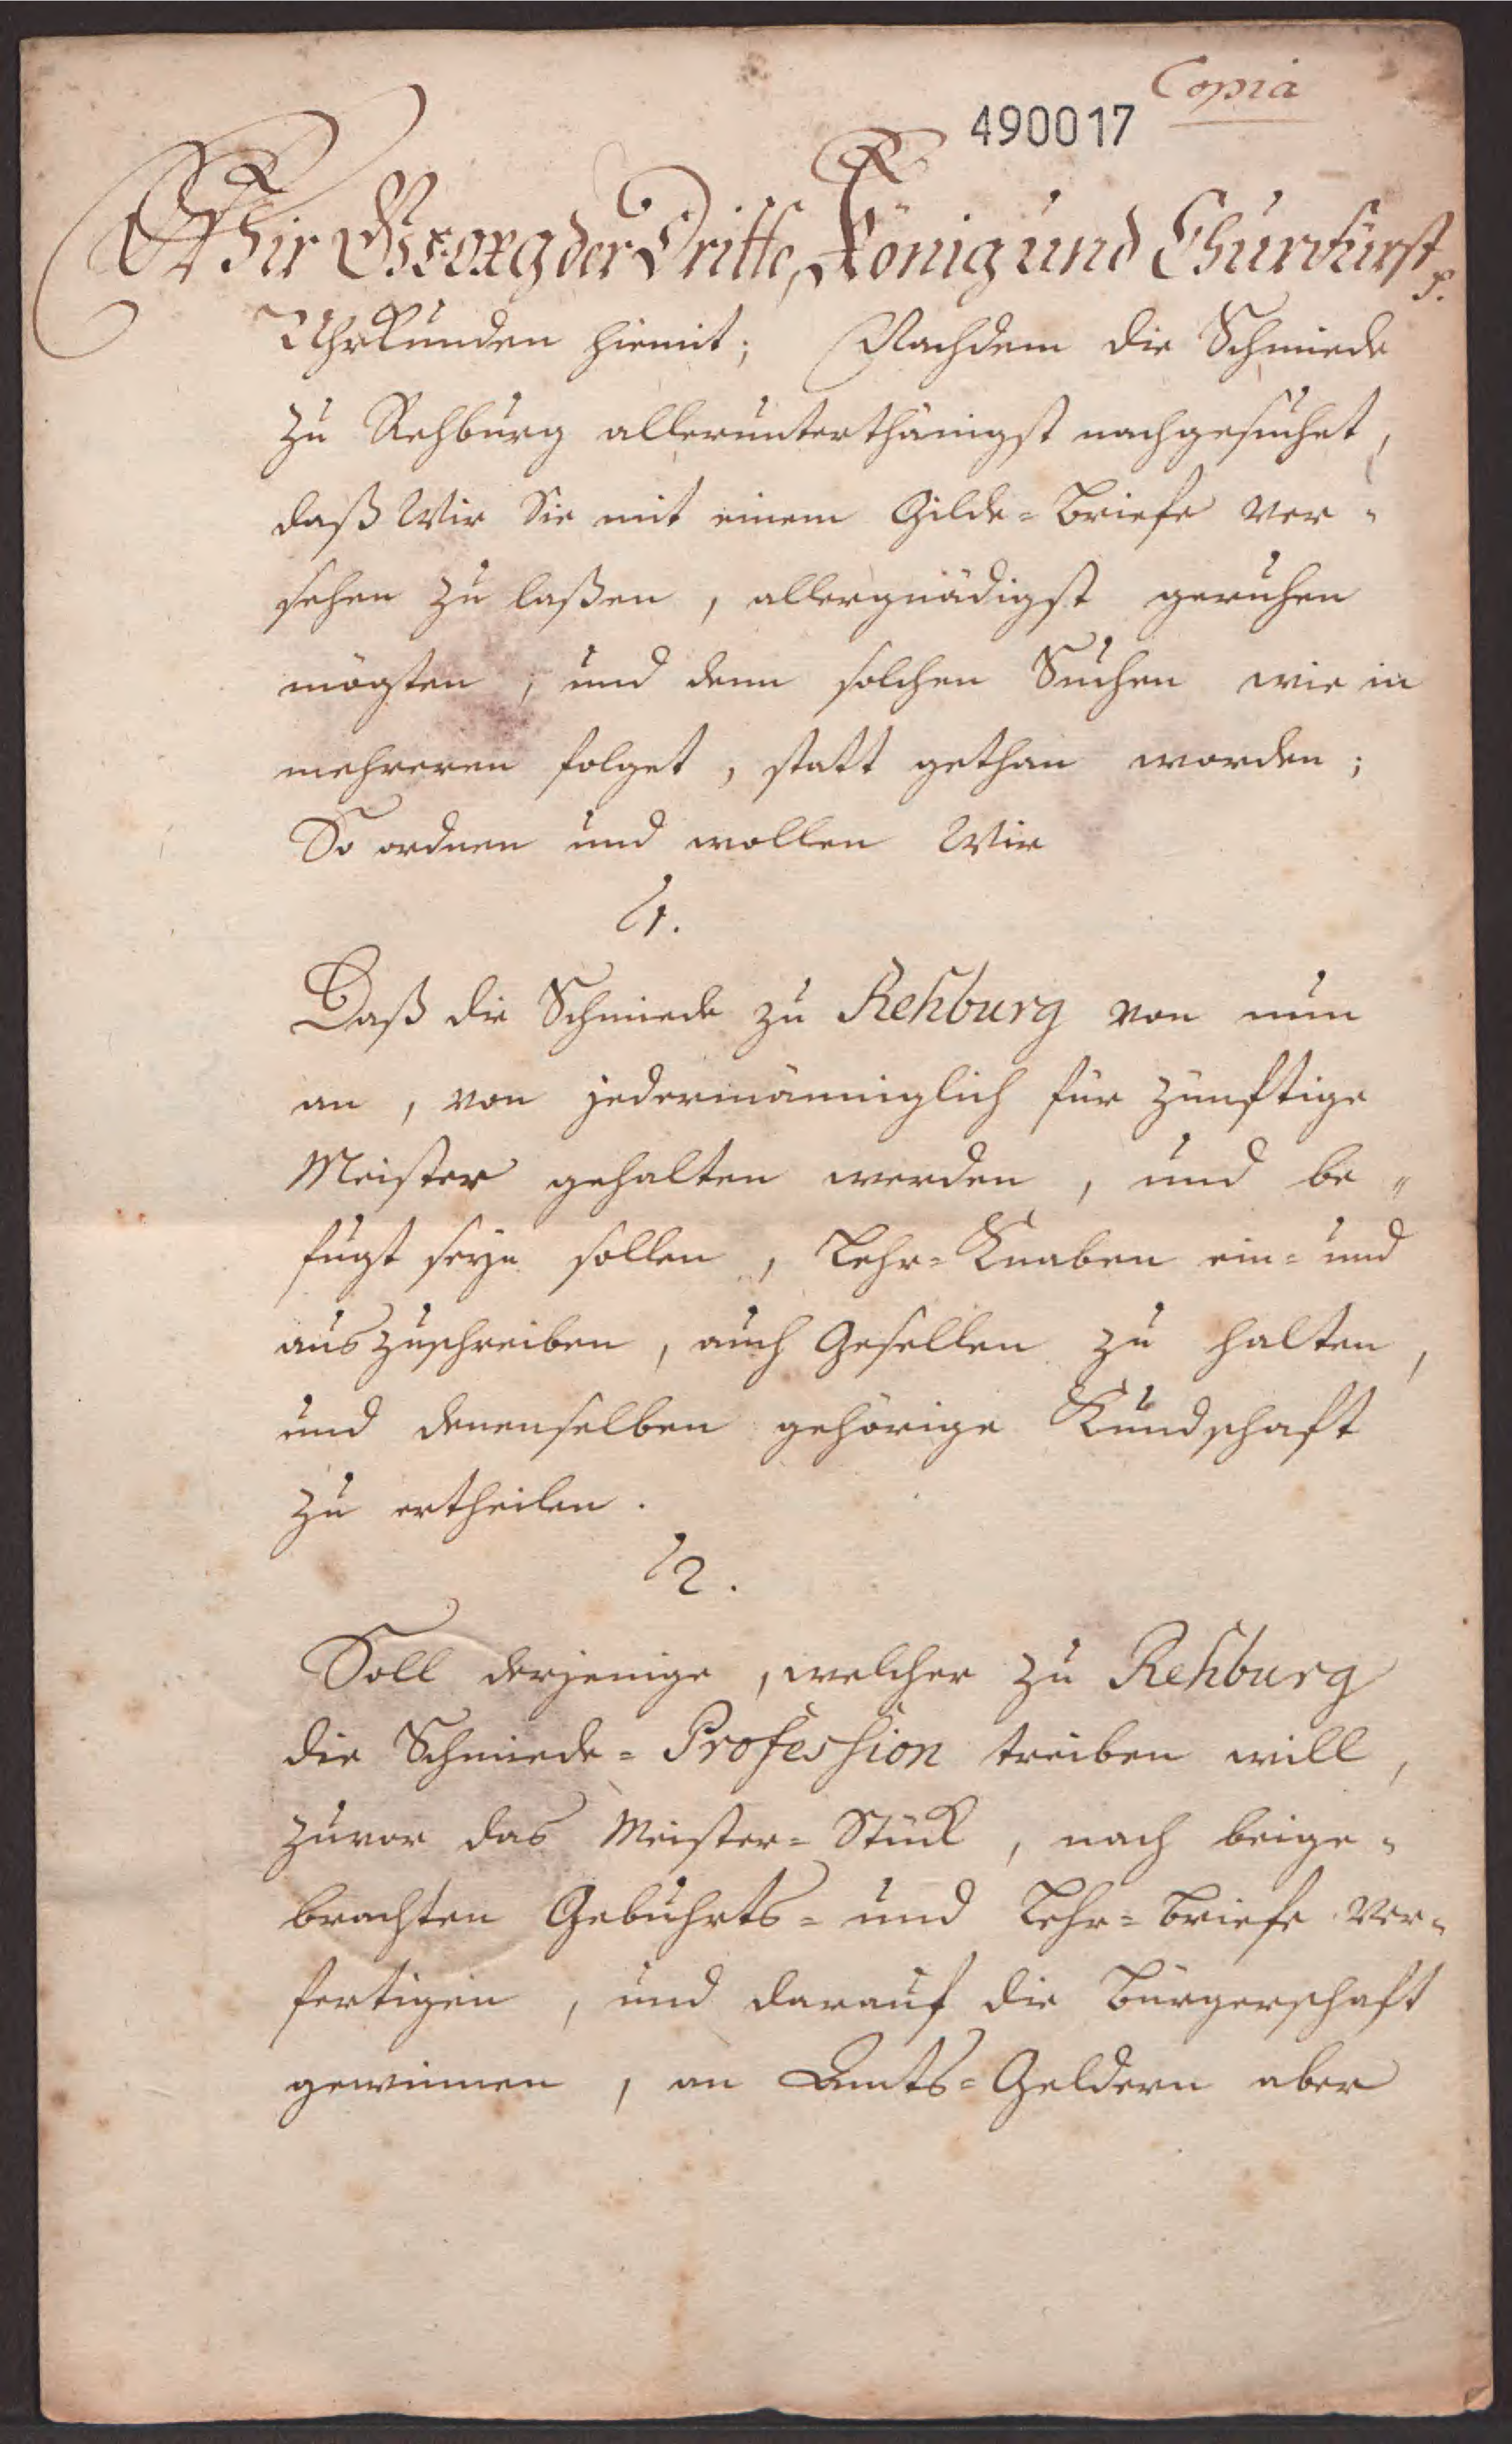 Copia
490017
Wir George der Dritte, König und Churfürst p.
Uhrkunden hiemit; Nachdem die Schmiede
zu Rehburg allerunterthänigst nachgesuchet,
daß Wir Sie mit einem Gilde=Briefe ver=
sehen zu laßen, allergnädigst geruhen
mögten, und denn solchen Suchen wie in
mehreren folget, statt gethan worden;
So ordnen und wollen Wir
1.
Daß die Schmiede zu Rehburg von nun
an, von jedermänniglich für zünftige
Meister gehalten werden, und be=
fugt seyn sollen, Lehr=Knaben ein= und
auszuschreiben, auch Gesellen zu halten,
und denenselben gehörige Kundschaft
zu ertheilen.
2.
Soll derjenige, welcher zu Rehburg
die Schmiede=Profession treiben will,
zuvor das Meister=Stück, nach beige=
brachten Gebuhrts= und Lehr=Briefe ver=
fertigen, und darauf die Bürgerschaft
gewinnen, an Amts=Geldern aber